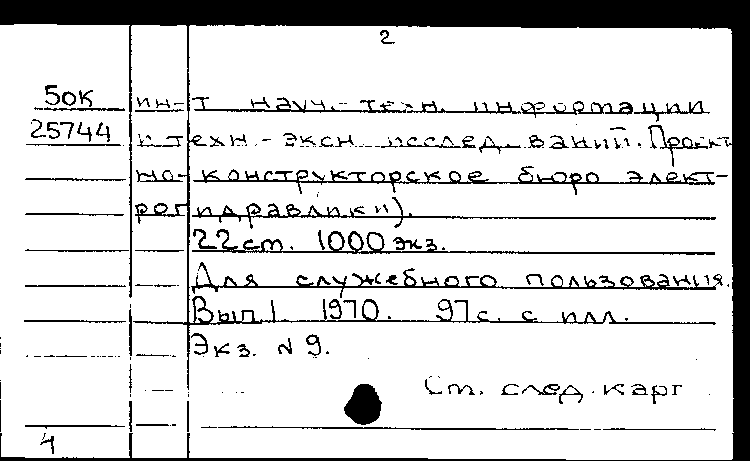 2
50К инᴴ-т науч.-техн. информации
25744 и техн.-экон исслед. ваний. Проект
но-конструкторское бюро элект-
рогидравлики).
22 ст. 1000 экз.
Для служебного пользования.
Вып.1. 1970. 97с. с илл.
Экз. № 9.
См. след. карт
4